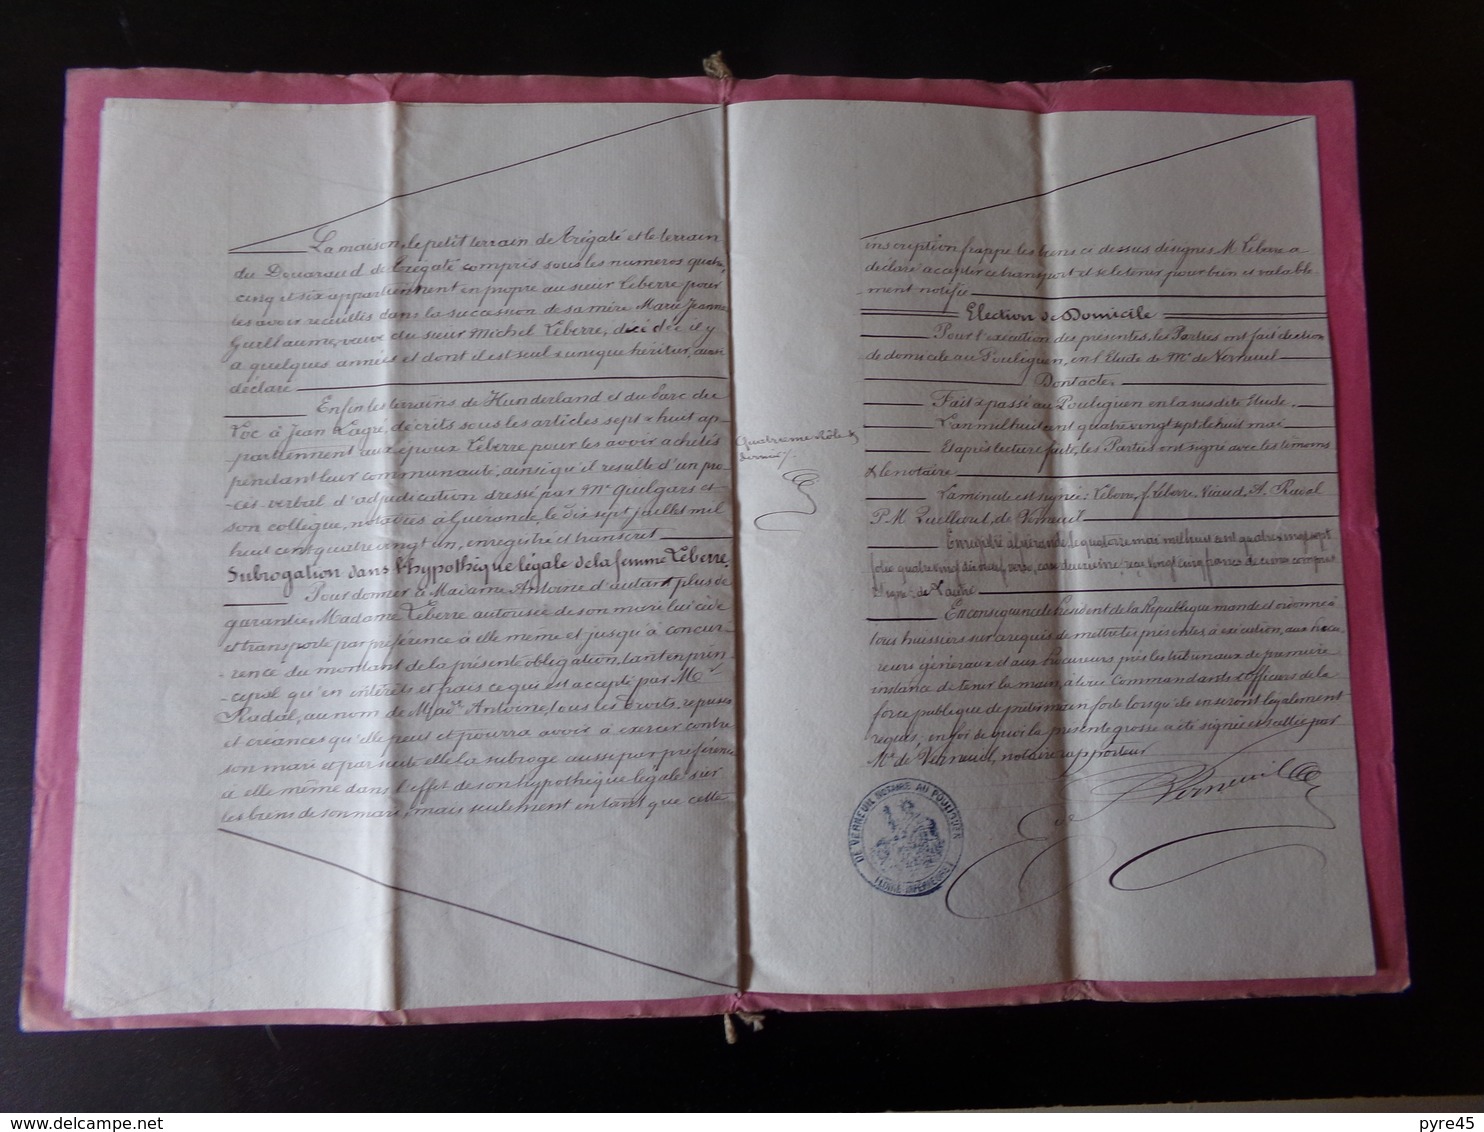 La maison, le petit terrain de Trégaté et le terrain
du Douaraud de Trégaté compris sous les numéros quatre,
cinq et six appartiennent en propre au sieur Leberre pour
les avoir recueillis dans la succession de sa mère Marie Jeanne
Guillaume, veuve du sieur Michel Leberre, décédée il y
a quelques années et dont il est seul & unique héritier, ainsi
déclaré
Enfin les terrains de Hunderland et du Parc du
Loc à Jean Lagré, décrits sous les articles sept & huit ap-
-partiennent aux époux Leberre pour les avoir achetés
pendant leur communauté, ainsi qu'il résulte d'un pro-
-cès verbal d'adjudication dressé par Me Quelgars et
son collègue, notaires à Guérande, le dix sept juillet mil
huit cent quatre vingt un, enregistré et transcrit
Subrogation dans l'hypothèque légale de la femme Leberre.
Pour donner à Madame Antoine d'autant plus de
garantie, Madame Leberre autorisée de son mari lui cède
et transporte par préférence à elle même et jusqu'à concur-
-rence du montant de la présente obligation, tant en prin-
-cipal qu'en intérêts et frais ce qui est accepté par Mr
au nom de Made Antoine, tous les droits, reprises
et créances qu'elle peut et pourra avoir à exercer contre
son mari et par suite elle la subroge aussi par préférence
à elle même dans l'effet de son hypothèque légale sur
les biens de son mari, mais seulement en tant que cette
Quatrième rôle &
dernier
inscription frappe les biens ci dessus désignés M. Leberre a
déclaré accepter ce transport et se le tenir pour bien et valable-
-ment notifié
Election de Domicile
Pour l'exécution des présentes, les Parties ont fait élection
de domicile au Pouliguen, en l'Etude de Me de Verneuil
Dont acte,
Fait & passé au Pouliguen en la susdite Etude.
L'an mil huit cent quatre vingt sept, le huit mai
Et après lecture faite, les Parties ont signé avec les témoins
& le notaire
La minute est signée: Leberre, f. Leberre, Viaud, A. Raval
P. M. Quelliout, de Verneuil
Enregistré à Guérande, le quatorze mai mil huit cent quatre vingt sept
folio quatre vingt dix neuf verso, case deuxième, reçu vingt cinq francs décimes compris
Signé: de Lautre
En conséquence le Président de la République mande et ordonne à
tous huissiers sur ce requis de mettre les présentes à exécution, aux Procu-
reurs généraux et aux Procureurs près les tribunaux de première
instance de tenir la main, à tous Commandants & Officiers de la
force publique de prêter main forte lorsqu'ils en seront légalement
requis, en foi de quoi la présente grosse a été signée et scellée par
Me de Verneuil, notaire rapporteur
De Verneuil
DE VERNEUIL NOTAIRE AU POULIGUEN
(LOIRE INFERIEURE)
delcampe.net
pyre45